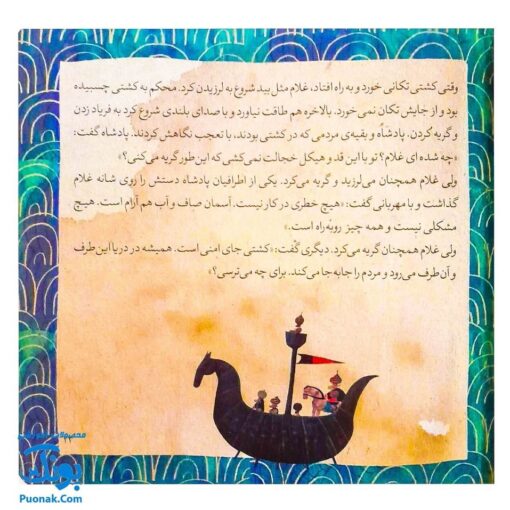 وقتی کشتی تکانی خورد و به راه افتاد، غلام مثل بید شروع به لرزیدن کرد. محکم به کشتی چسبیده
بود و از جایش تکان نمی‌خورد. بالاخره هم طاقت نیاورد و با صدای بلندی شروع کرد به فریاد زدن
و گریه کردن. پادشاه و بقیه‌ی مردمی که در کشتی بودند، با تعجب نگاهش کردند. پادشاه گفت:
«چه شده ای غلام؟ تو با این قد و هیکل خجالت نمی‌کشی که این طور گریه می‌کنی؟»
ولی غلام همچنان می‌لرزید و گریه می‌کرد. یکی از اطرافیان پادشاه دستش را روی شانه غلام
گذاشت و با مهربانی گفت: «هیچ خطری در کار نیست. آسمان صاف و آب هم آرام است. هیچ
مشکلی نیست و همه چیز روبه‌راه است.»
ولی غلام همچنان گریه می‌کرد. دیگری گفت: «کشتی جای امنی است. همیشه در دریا این طرف
و آن طرف می‌رود و مردم را جابه‌جا می‌کند. برای چه می‌ترسی؟»
Puonak.Com